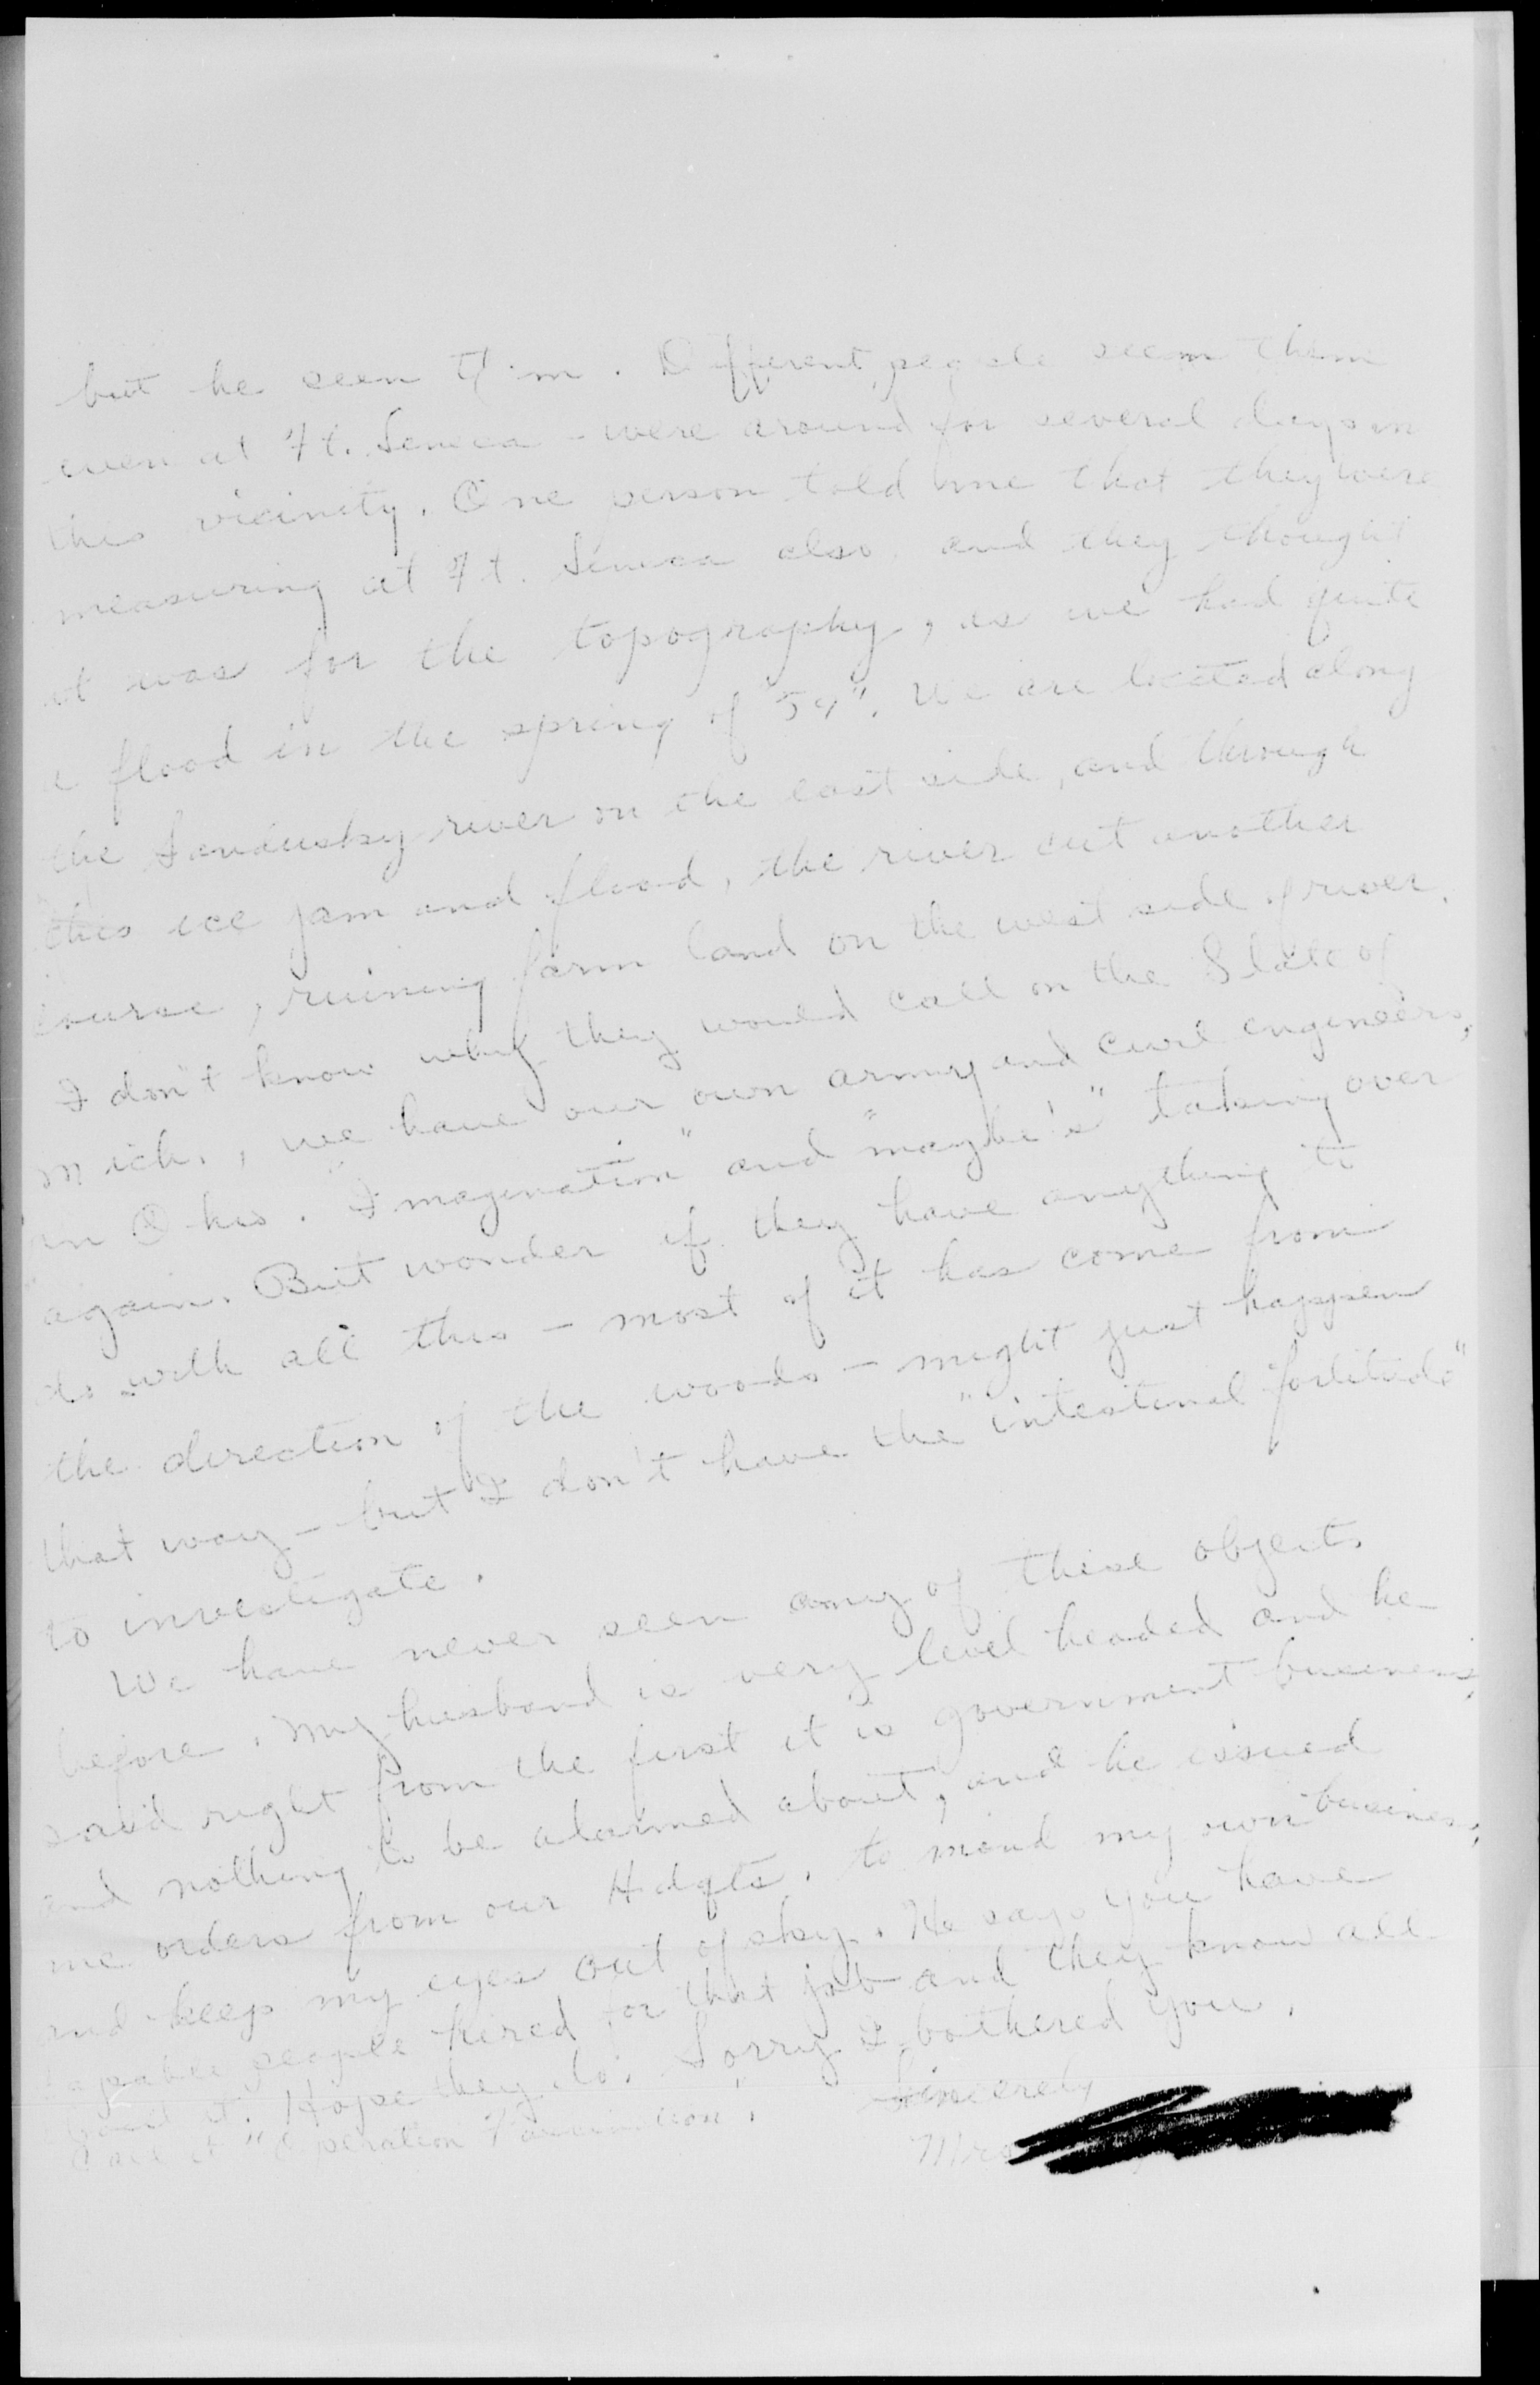 but he seen them. Different people seem them
even at Ft. Seneca - were around for several days in
this vicinity. One person told me that they were
measuring at Ft. Seneca also and they thought
it was for the topography, as we had quite
a flood in the spring of "59". We are located along
the Sandusky river on the east side, and through
this ice jam and flood, the river cut another
course, ruining farm land on the west side of river.
I don't know why they would call on the State of
Mich., we have our own army and civil engineers,
in Ohio. "Imagination" and "maybe's" taking over
again. But wonder if they have anything to
do with all this - most of it has come from
the direction of the woods - might just happen
that way - but I don't have the "intestinal fortitude"
to investigate.
We have never seen any of these objects
before. My husband is very level headed and he
said right from the first it is government business,
and nothing to be alarmed about, and he issued
me orders from our Hdqts. to mind my own business,
and keep my eyes out of sky. He says you have
capable people hired for that job and they know all
about it. Hope they do. Sorry I bothered you.
Call it "Operation
Sincerely
Mrs